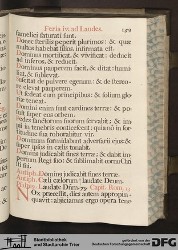 Feria iv. ad Laudes.
famelici saturati sunt.
Donec sterilis peperit plurimos: & quæ
multos habebat filios, infirmata est.
Dominus mortificat, & vivificat: deducit
ad inferos, & reducit.
Dominus pauperem facit, & ditat: humi-
liat, & sublevat.
Suscitat de pulvere egenum: & de sterco-
re elevat pauperem.
Ut sedeat cum principibus: & solium glo-
riæ teneat.
Domini enim sunt cardines terræ: & po-
suit super eos orbem.
Pedes sanctorum suorum servabit: & im-
pii in tenebris conticescent: quia non in for-
titudine sua roborabitur vir.
Dominum formidabunt adversarii ejus: &
super ipsos in cælis tonabit.
Dominus judicabit fines terræ: & dabit im-
perium Regi suo: & sublimabit cornu Chri-
sti sui.
Antiph. Dominus judicabit fines terræ.
Antiph. Cæli cælorum: laudate Deum.
Laudate Dñm.
Capit. Rom. 13.
Nox præcessit, dies autem appropin-
quavit: abjiciamus ergo opera tene-
Stadtbibliothek
und Stadtarchiv Trier
gefördert von der
Deutschen Forschungsgemeinschaft
DFG